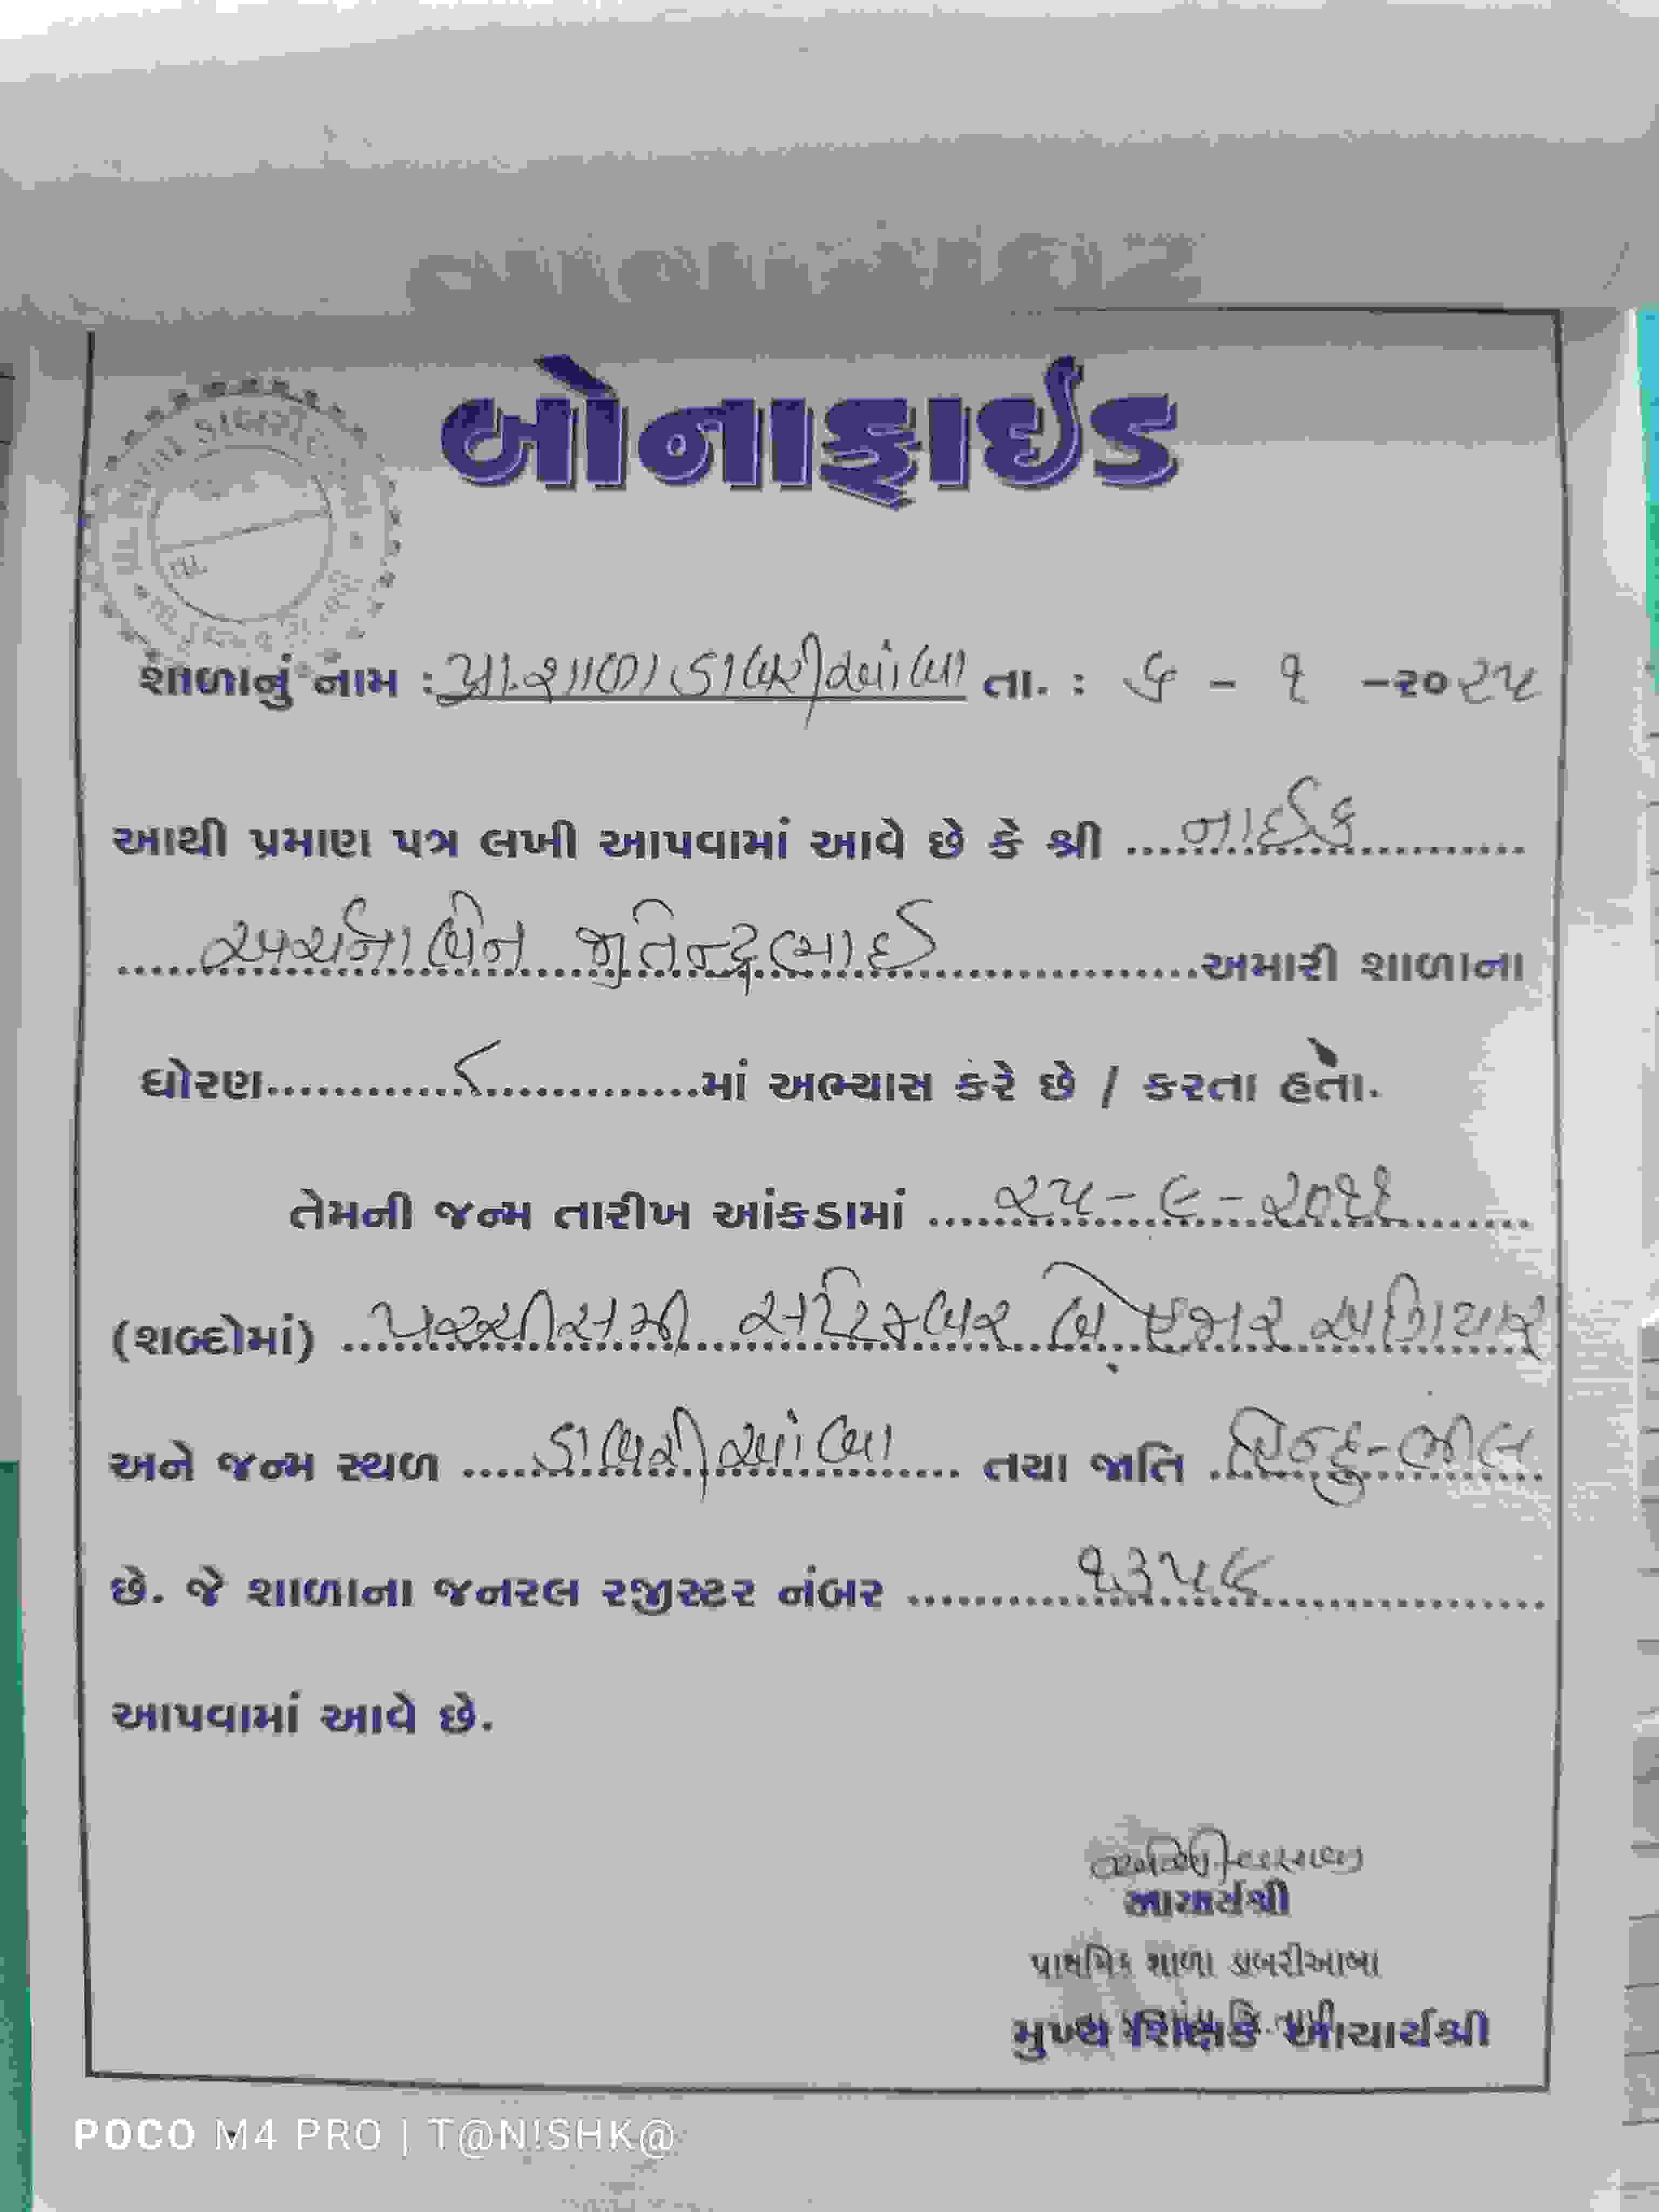 બોનાફાઈડ
શાળાનું નામ : પ્રા.શાળા ડાબરીઆંબા તા. : ૬ - ૧ -૨૦૨૫
આથી પ્રમાણ પત્ર લખી આપવામાં આવે છે કે શ્રી નાઈક
અર્ચનાબેન જીતેન્દ્રભાઈ અમારી શાળાના
ધોરણ ૮ માં અભ્યાસ કરે છે / કરતા હતો.
તેમની જન્મ તારીખ આંકડામાં ૨૫-૯-૨૦૧૧
(શબ્દોમાં) પચ્ચીસમી સપ્ટેમ્બર બે હજાર અગિયાર
અને જન્મ સ્થળ ડાબરીઆંબા તથા જાતિ હિન્દુ-ભીલ
છે. જે શાળાના જનરલ રજીસ્ટર નંબર ૧૩૫૬
આપવામાં આવે છે.
આચાર્યશ્રી
પ્રાથમિક શાળા ડાબરીઆંબા
મુખ્ય શિક્ષક આચાર્યશ્રી
POCO M4 PRO | T@N!SHK@